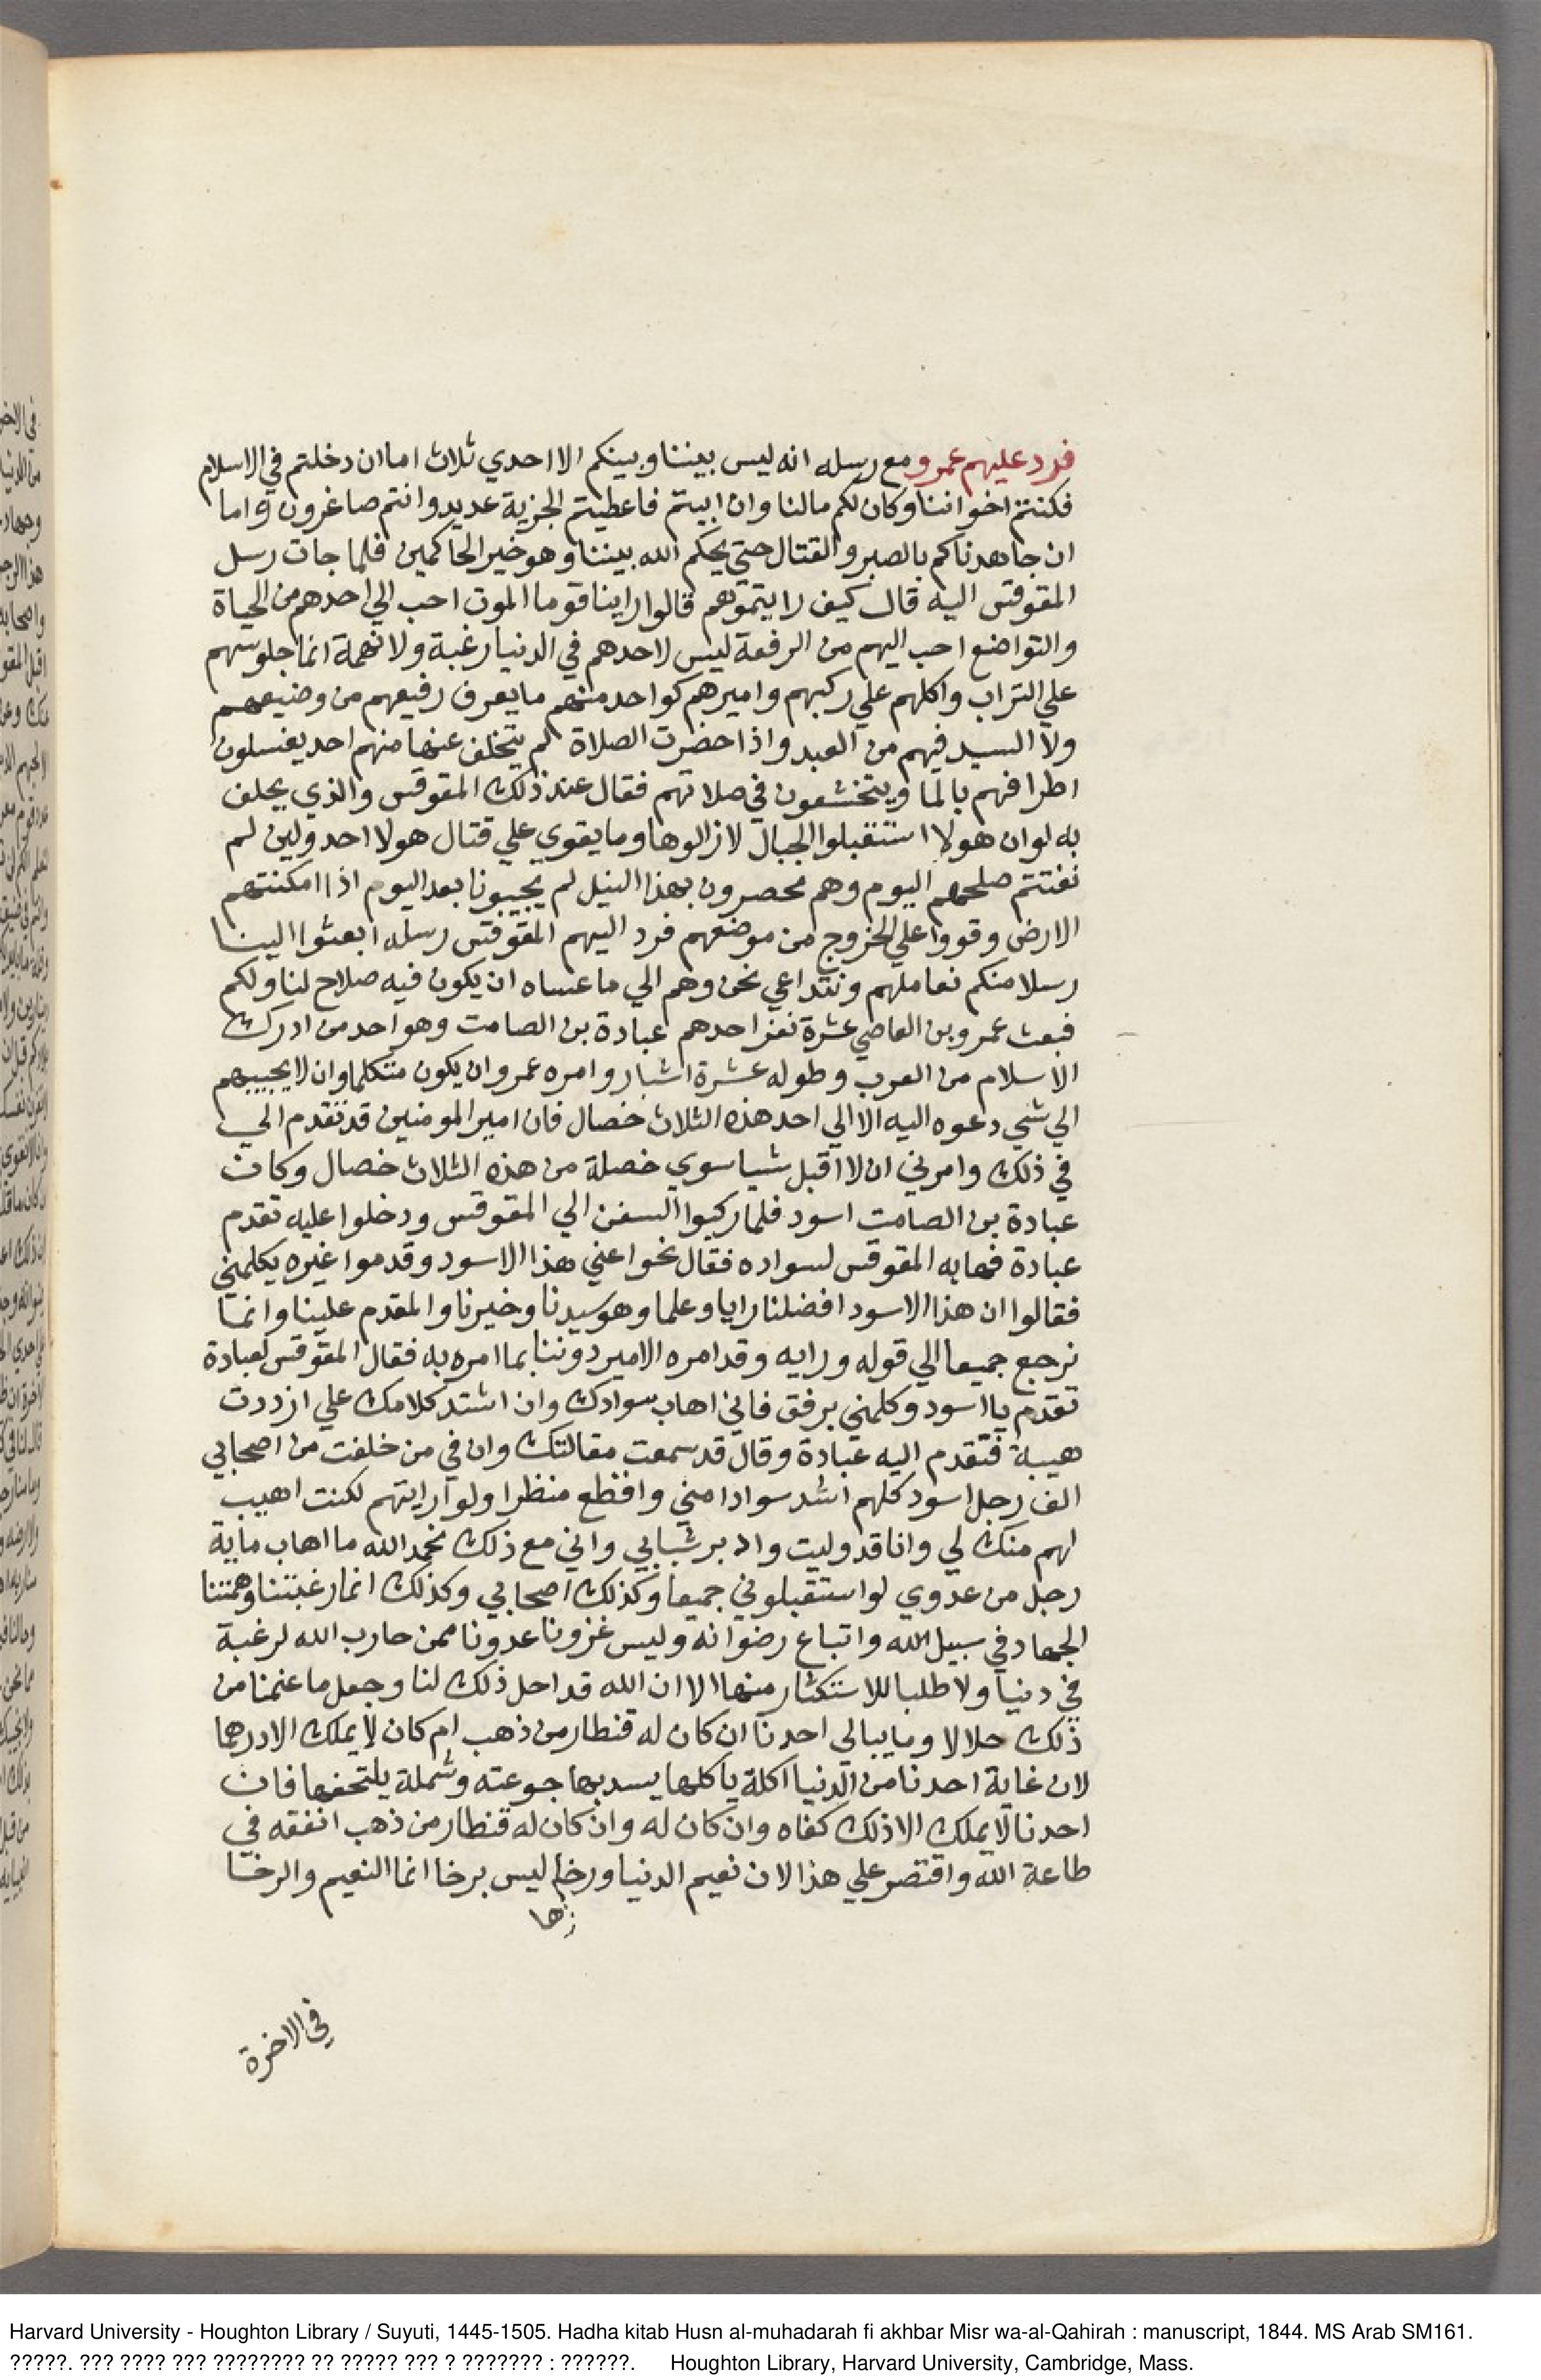 فرد عليهم عمرو مع رسله انه ليس بيننا وبينكم الا احدي ثلاث اما ان دخلتم في الاسلام
فكنتم اخواننا وكان لكم مالنا وان ابيتم فاعطيتم الجزية عديد وانتم صاغرون واما
ان جاهدناكم بالصبر والقتال حتي يحكم الله بيننا وهو خير الحاكمين فلما جات رسل
المقوقس اليه قال كيف رايتموهم قالوا راينا قوما الموت احب الي احدهم من الحياة
والتواضع احب اليهم من الرفعة ليس لاحدهم في الدنيا رغبة ولا نهمة انما جلوسهم
علي التراب واكلهم علي ركبهم واميرهم كواحد منهم ما يعرف رفيعهم من وضيعهم
ولا السيد فيهم من العبد واذا حضرت الصلاة لم يتخلف عنها منهم احد يغسلون
اطرافهم بالما ويتخشعون في صلاتهم فقال عند ذلك المقوقس والذي يحلف
به لو ان هولا استقبلوا الجبال لازالوها وما يقوي علي قتال هولا احد ولين لم
نغتنم صلحهم اليوم وهم محصرون بهذا النيل لم يجيبونا بعد اليوم اذا امكنتهم
الارض وقووا علي الخروج من موضعهم فرد اليهم المقوقس رسله ابعثوا الينا
رسلا منكم نعاملهم ونتداعي نحن وهم الي ما عساه ان يكون فيه صلاح لنا ولكم
فبعث عمرو بن العاصي عشرة نفر احدهم عبادة بن الصامت وهو احد من ادرك
الاسلام من العرب وطوله عشرة اشبار وامره عمرو ان يكون متكلما وان لا يجيبهم
الي شي دعوه اليه الا الي احد هذه الثلاث خصال فان امير المومنين قد تقدم الي
في ذلك وامرني ان لا اقبل شيا سوي خصلة من هذه الثلاث خصال وكان
عبادة بن الصامت اسود فلما ركبوا السفن الي المقوقس ودخلوا عليه تقدم
عبادة فهابه المقوقس لسواده فقال نحوا عني هذا الاسود وقدموا غيره يكلمني
فقالوا ان هذا الاسود افضلنا رايا وعلما وهو سيدنا وخيرنا والمقدم علينا وانما
نرجع جميعا الي قوله ورايه وقد امره الامير دوننا بما امره به فقال المقوقس لعبادة
تقدم يا اسود وكلمني برفق فاني اهاب سوادك وان اشتد كلامك علي ازددت
هيبة فتقدم اليه عبادة وقال قد سمعت مقالتك وان في من خلفت من اصحابي
الف رجل اسود كلهم اشد سوادا مني وافظع منظرا ولو رايتهم لكنت اهيب
لهم منك لي وانا قد وليت وادبر شبابي واني مع ذلك بحمد الله ما اهاب ماية
رجل من عدوي لو استقبلوني جميعا وكذلك اصحابي وكذلك انما رغبتنا وهمتنا
الجهاد في سبيل الله واتباع رضوانه وليس غزونا عدونا ممن حارب الله لرغبة
في دنيا ولا طلبا للاستكثار منها الا ان الله قد احل ذلك لنا وجعل ما غنمنا من
ذلك حلالا وما يبالي احدنا ان كان له قنطار من ذهب ام كان لا يملك الا درهما
لان غاية احدنا من الدنيا اكلة ياكلها يسد بها جوعته وشملة يلتحفها فان
احدنا لا يملك الا ذلك كفاه وان كان له وان كان له قنطار من ذهب انفقه في
طاعة الله واقتصر علي هذا لان نعيم الدنيا ورخا ليس برخا انما النعيم والرخا
ها
في الاخرة
Harvard University - Houghton Library / Suyuti, 1445-1505. Hadha kitab Husn al-muhadarah fi akhbar Misr wa-al-Qahirah : manuscript, 1844. MS Arab SM161.
?????. ??? ???? ??? ???????? ?? ????? ??? ? ??????? : ??????. Houghton Library, Harvard University, Cambridge, Mass.